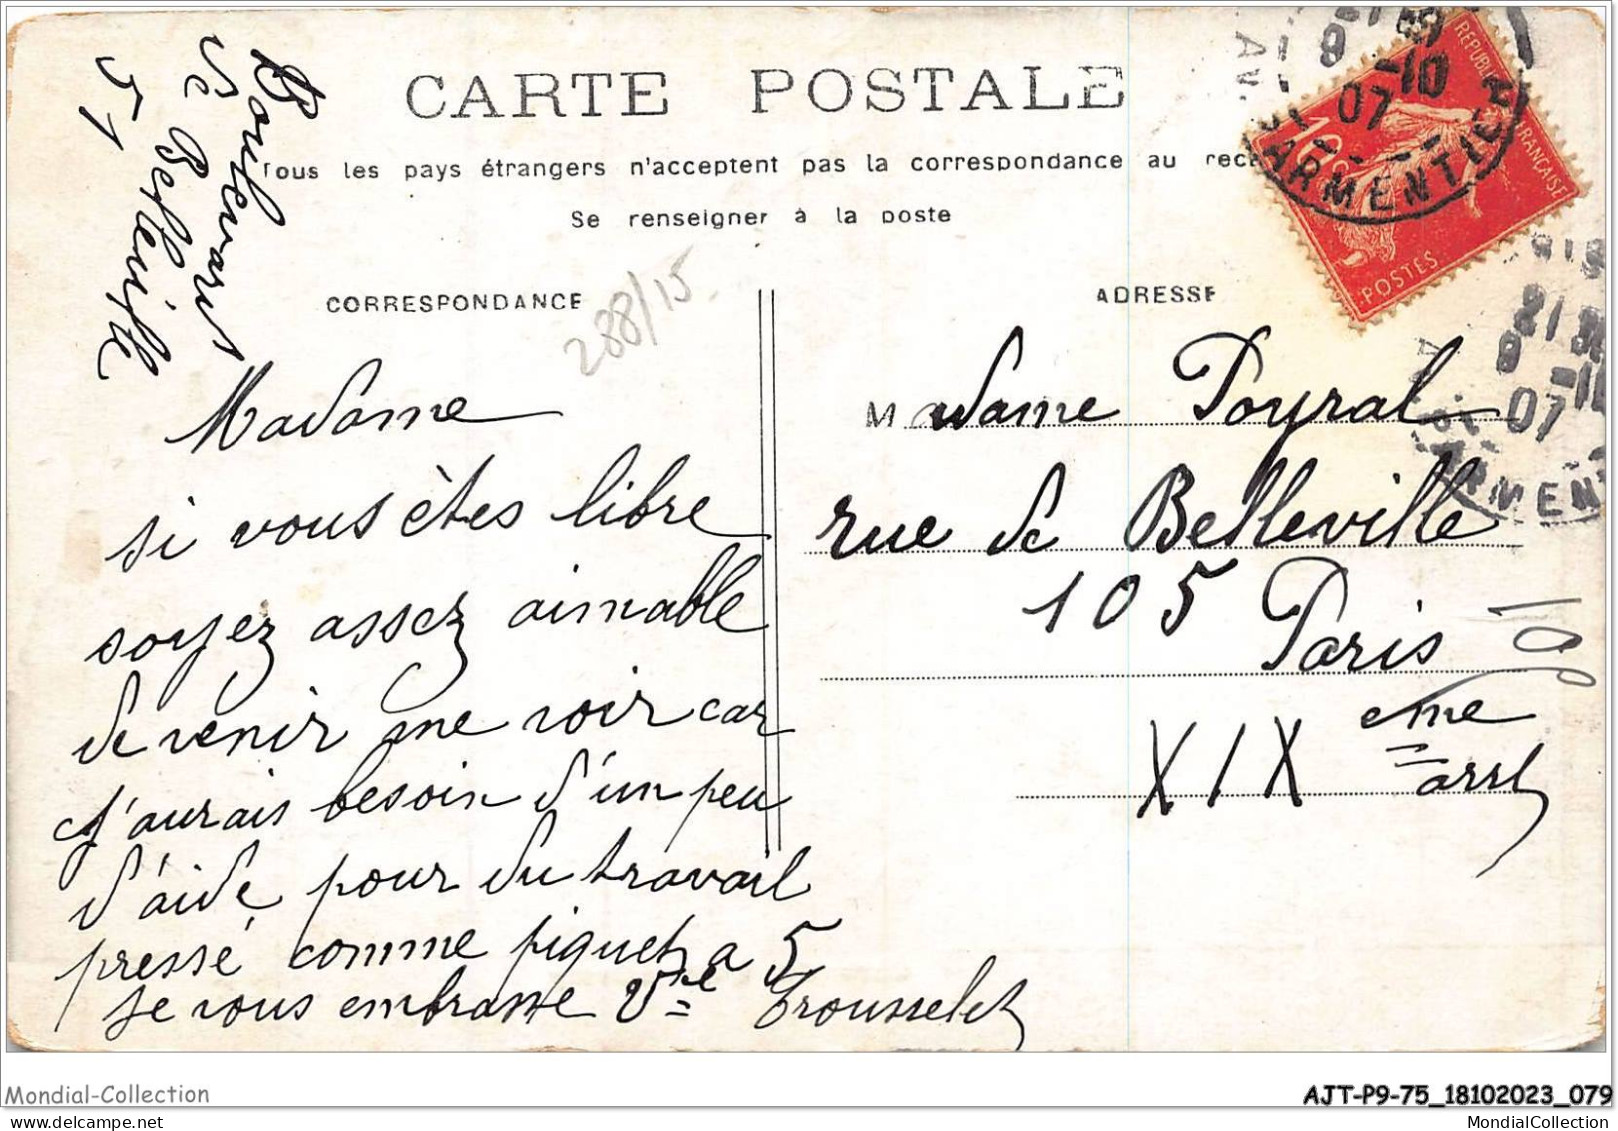 CARTE POSTALE
Tous les pays étrangers n'acceptent pas la correspondance au rec
Se renseigner à la poste
Boulevard
de Belleville
51
CORRESPONDANCE
288/15
Madame
si vous êtes libre
soyez assez aimable
de venir me voir car
j'aurais besoin d'un peu
d'aide pour du travail
pressé comme piquet a 5
Je vous embrasse Vve Trousselet
ADRESSE
Madame Poyral
rue de Belleville
105 Paris
XIX eme arrt
REPUBLIQUE FRANÇAISE
10c
POSTES
9 -10
07
ARMENTIE
21
9 -10
07
ARMEN
Mondial-Collection
AJT-P9-75_18102023_079
www.mondialcollection.com
MondialCollection
MondialCollection.com